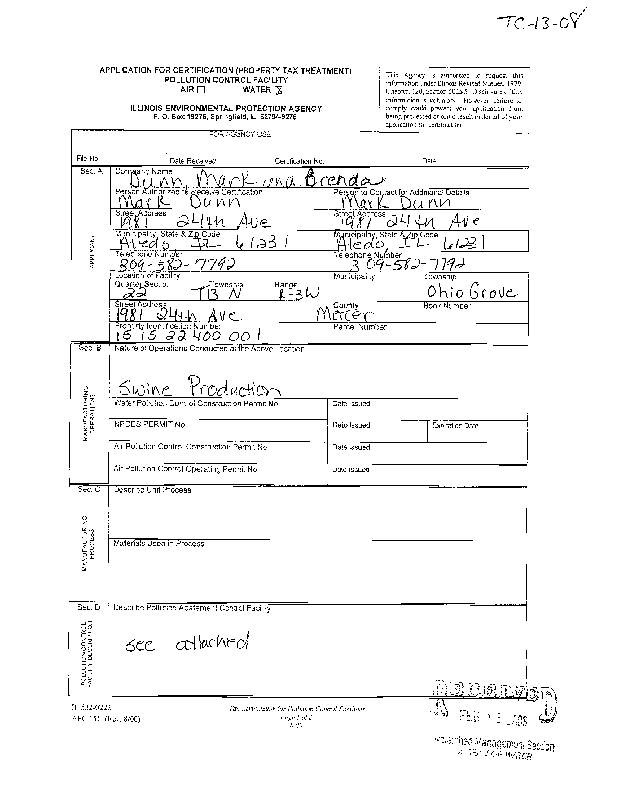 TC-13-08
APPLICATION FOR CERTIFICATION (PROPERTY TAX TREATMENT)
POLLUTION CONTROL FACILITY
AIR ☐ WATER ☒
ILLINOIS ENVIRONMENTAL PROTECTION AGENCY
P. O. Box 19276, Springfield, IL 62794-9276
This Agency is authorized to request this
information under Illinois Revised Statutes, 1979,
being processed or could result in denial of your
application for certification.
FOR AGENCY USE
File No. Date Received Certification No. Date
Sec. A Company Name
Dunn, Mark and Brenda
Person Authorized to Receive Certification Person to Contact for Additional Details
Mark Dunn Mark Dunn
Street Address Street Address
1981 24th Ave 1981 24th Ave
Municipality, State & Zip Code Municipality, State & Zip Code
Aledo IL 61231 Aledo, IL 61231
Telephone Number Telephone Number
309-582-7792 309-582-7792
Location of Facility Municipality Township
Quarter Section Township Range
22 13 N R-3W Ohio Grove
Street Address County Book Number
1981 24th Ave Mercer
Property Identification Number Parcel Number
15 15 22 400 001
APPLICANT
Sec. B Nature of Operations Conducted at the Above Location
Swine Production
Water Pollution Control Construction Permit No. Date Issued
NPDES PERMIT No. Date Issued Expiration Date
Air Pollution Control Construction Permit No. Date Issued
Air Pollution Control Operating Permit No. Date Issued
MANUFACTURING
OPERATIONS
Sec. C Describe Unit Process
Materials Used in Process
MANUFACTURING
PROCESS
Sec. D Describe Pollution Abatement Control Facility
see attached
POLLUTION CONTROL
FACILITY DESCRIPTION
Page 1 of 2
Watershed Management Section